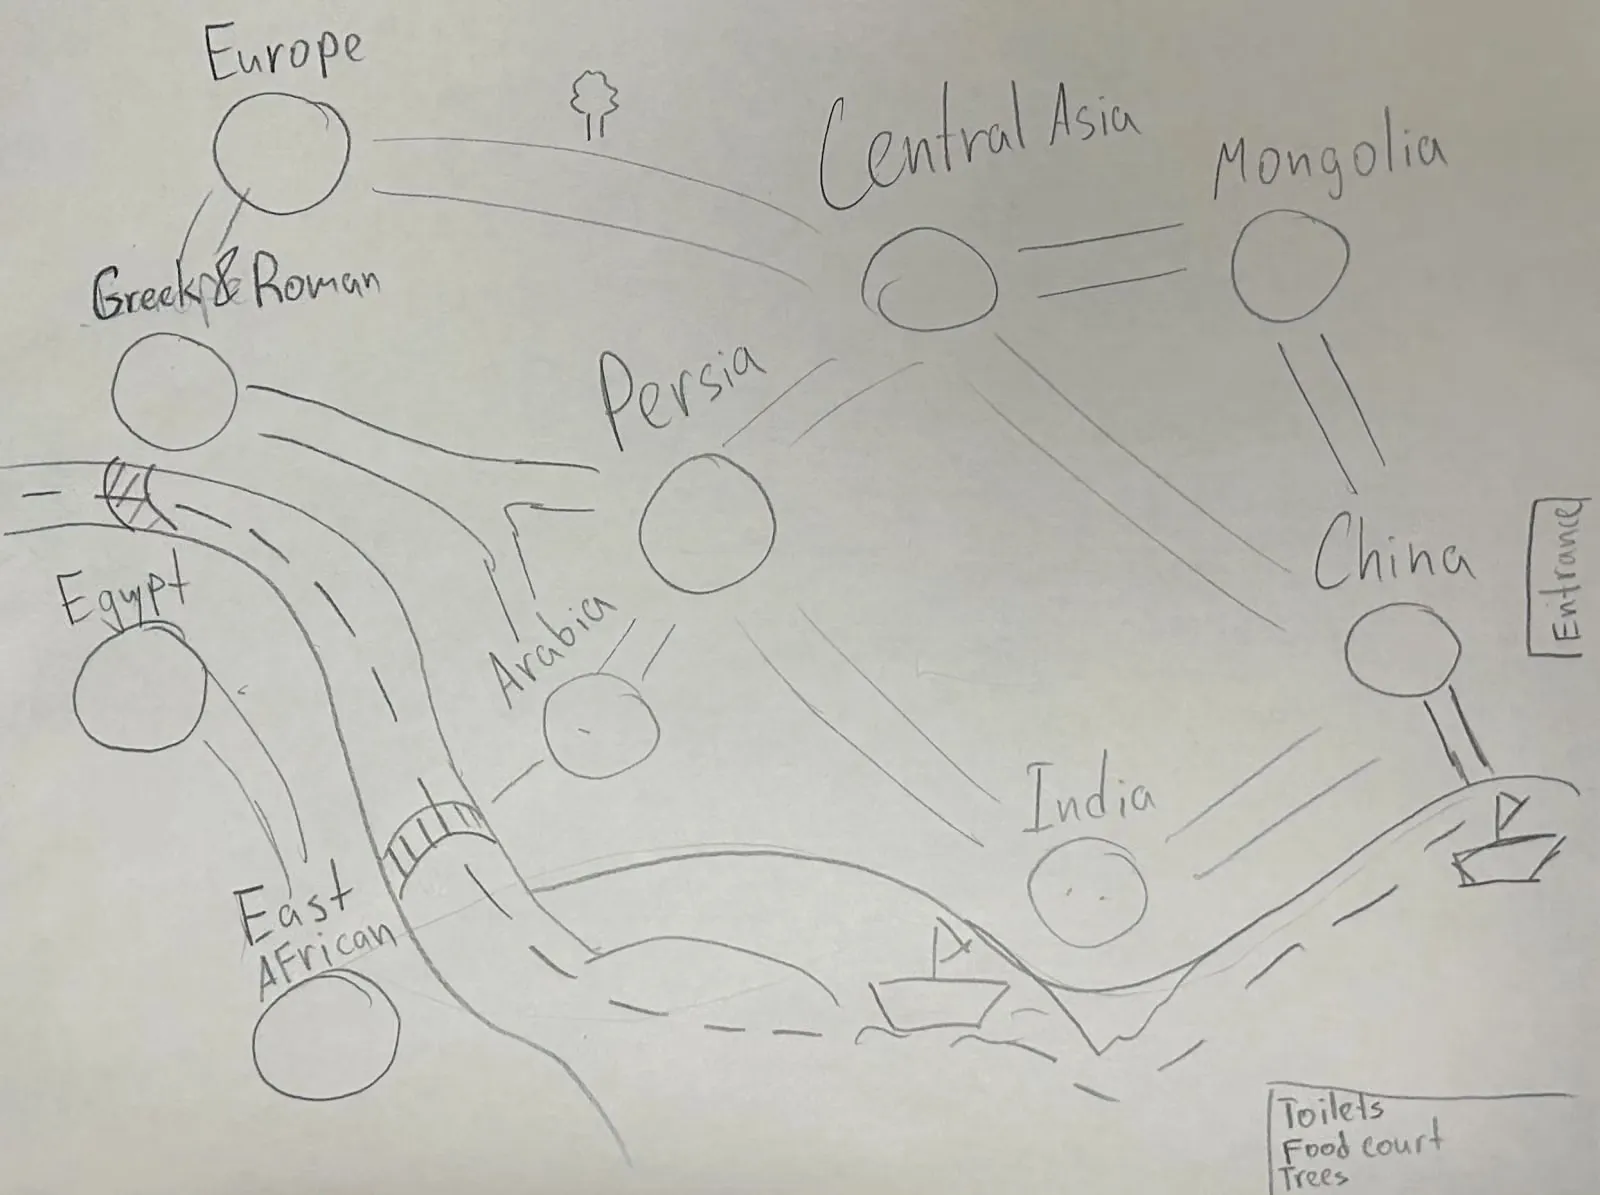 Europe
Central Asia
Mongolia
Greek & Roman
Persia
China
Entrance
Egypt
Arabia
India
East
African
Toilets
Food court
Trees